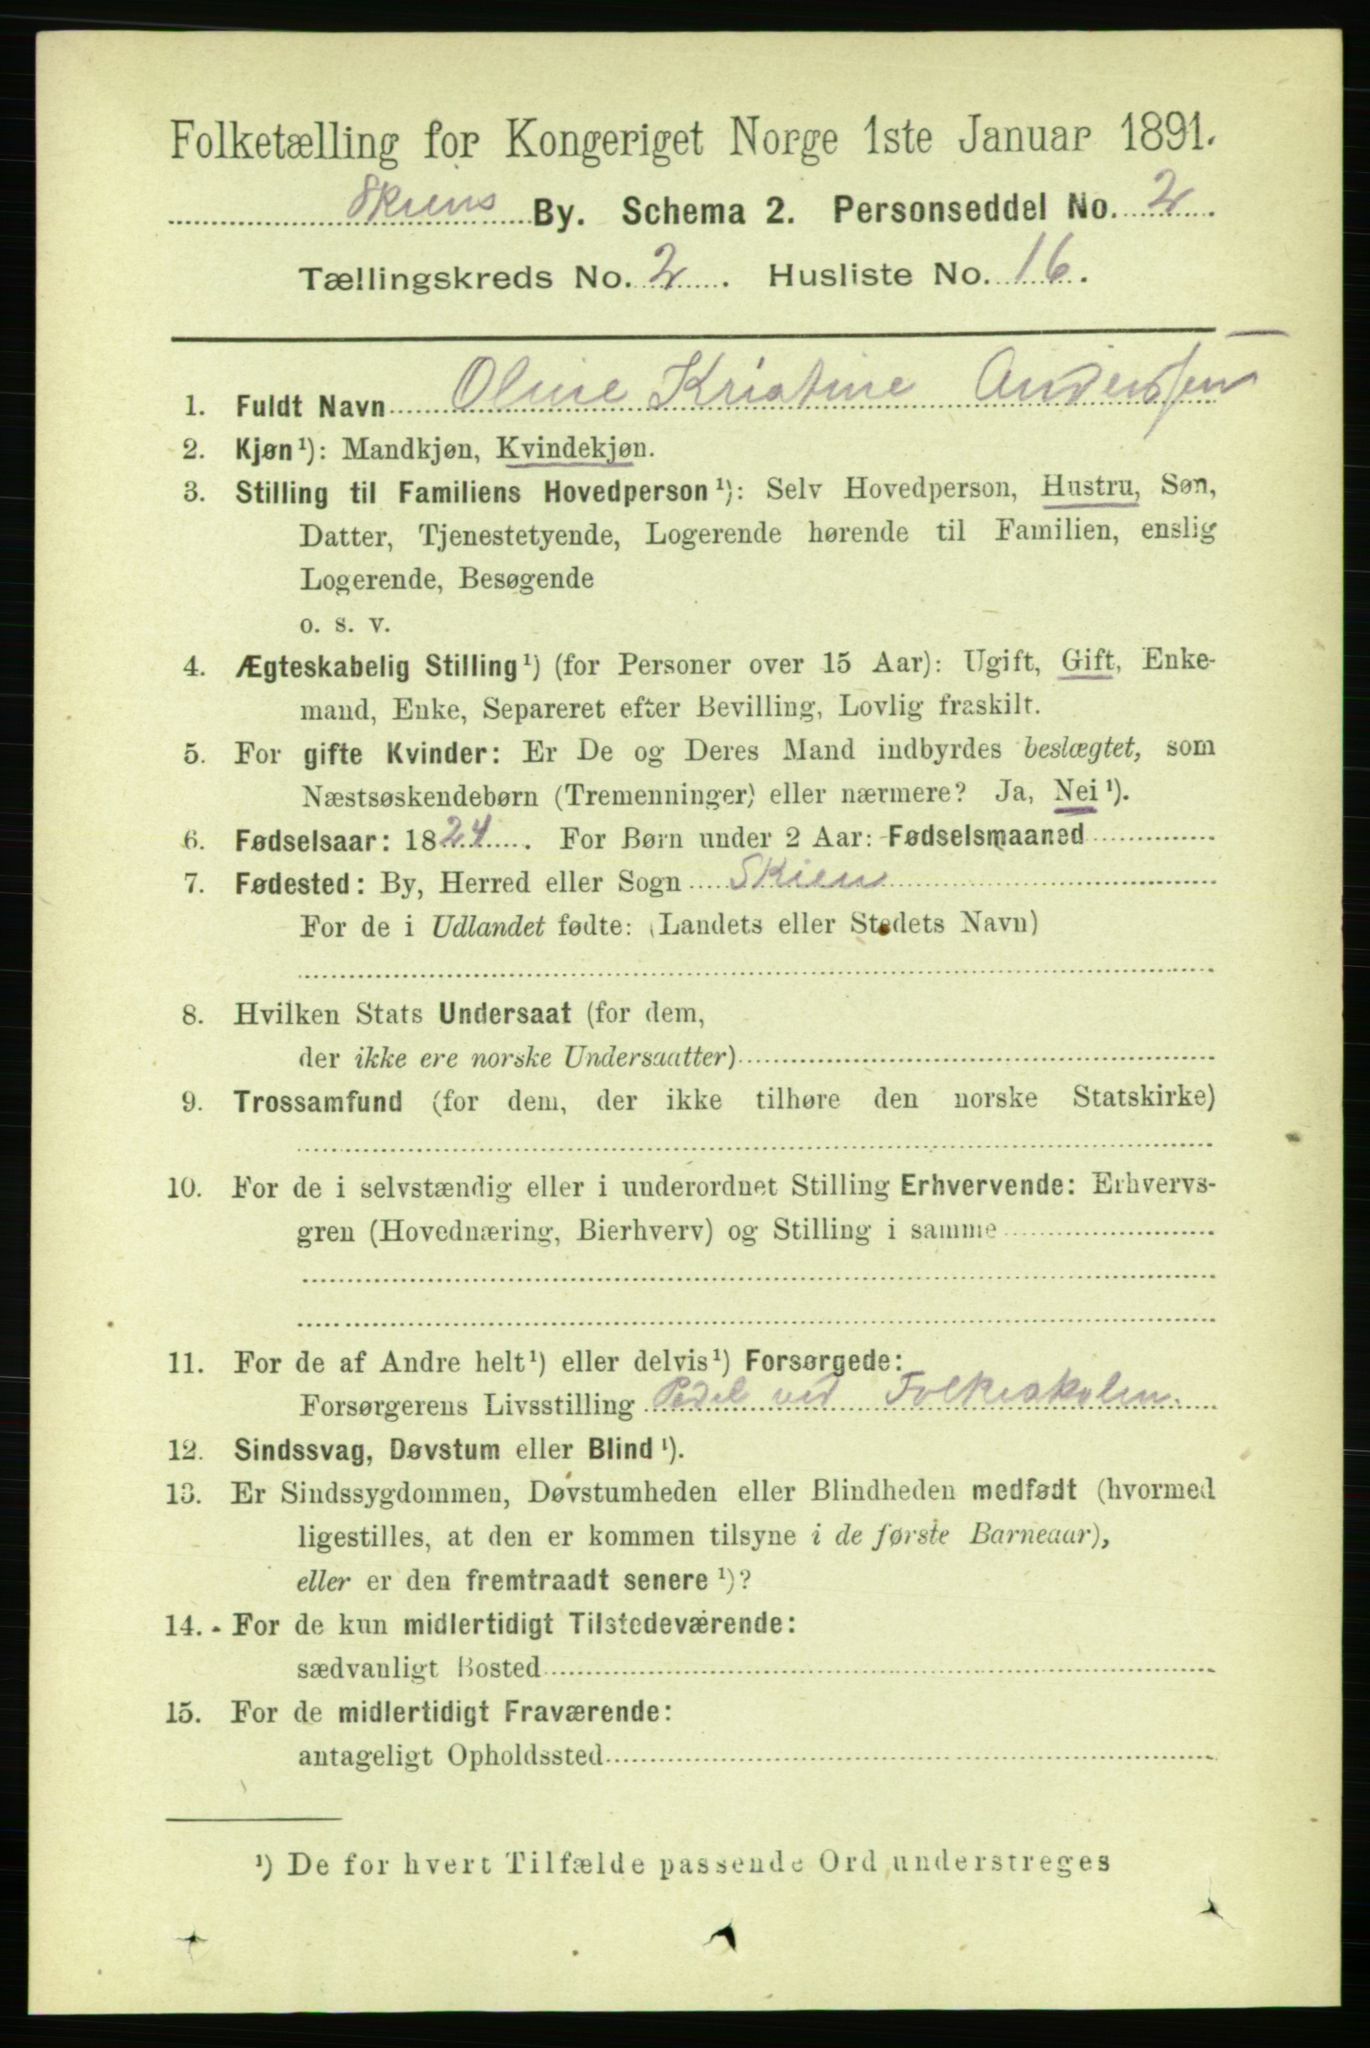 Folketælling for Kongeriget Norge 1ste Januar 1891.
Skiens By. Schema 2. Personseddel No. 2.
Tællingskreds No. 2. Husliste No. 16.
1. Fuldt Navn Oline Kristine Anderssen
2. Kjøn¹): Mandkjøn, Kvindekjøn.
3. Stilling til Familiens Hovedperson¹): Selv Hovedperson, Hustru, Søn,
Datter, Tjenestetyende, Logerende hørende til Familien, enslig
Logerende, Besøgende
o. s. v.
4. Ægteskabelig Stilling¹) (for Personer over 15 Aar): Ugift, Gift, Enke-
mand, Enke, Separeret efter Bevilling, Lovlig fraskilt.
5. For gifte Kvinder: Er De og Deres Mand indbyrdes beslægtet, som
Næstsøskendebørn (Tremenninger) eller nærmere? Ja, Nei¹).
6. Fødselsaar: 1824. For Børn under 2 Aar: Fødselsmaaned
7. Fødested: By, Herred eller Sogn Skien
For de i Udlandet fødte: (Landets eller Stedets Navn)
8. Hvilken Stats Undersaat (for dem,
der ikke ere norske Undersaatter)
9. Trossamfund (for dem, der ikke tilhøre den norske Statskirke)
10. For de i selvstændig eller i underordnet Stilling Erhvervende: Erhvervs-
gren (Hovednæring, Bierhverv) og Stilling i samme
11. For de af Andre helt¹) eller delvis¹) Forsørgede:
Forsørgerens Livsstilling Pedel ved Folkeskolen.
12. Sindssvag, Døvstum eller Blind¹).
13. Er Sindssygdommen, Døvstumheden eller Blindheden medfødt (hvormed
ligestilles, at den er kommen tilsyne i de første Barneaar),
eller er den fremtraadt senere¹)?
14. For de kun midlertidigt Tilstedeværende:
sædvanligt Bosted
15. For de midlertidigt Fraværende:
antageligt Opholdssted
¹) De for hvert Tilfælde passende Ord understreges